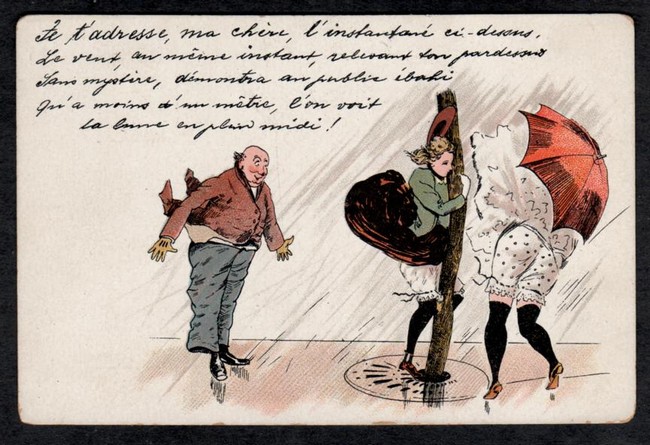 Je t'adresse, ma chère, l'instantané ci-dessus,
Le vent, au même instant, relevant ton pardessus
Sans mystère, démontra au public ébahi
Qu'à moins d'un mètre, l'on voit
la lune en plein midi !